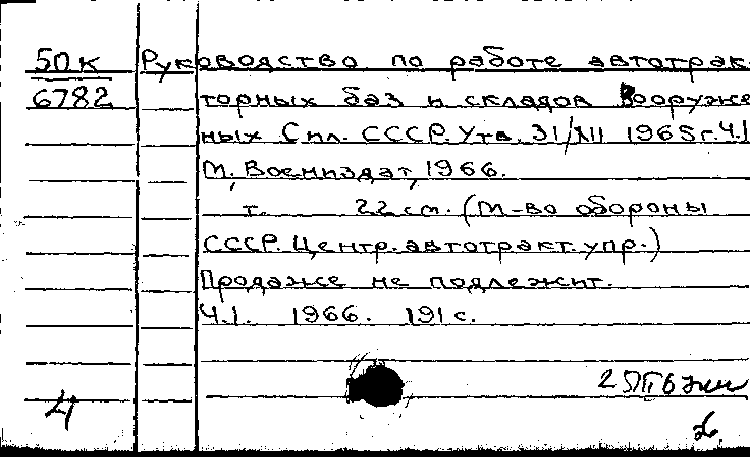 50К Руководство по работе автотрак-
6782 торных баз и складов Вооруже
ных Сил. СССР. Утв. 31/XII 1965г. Ч.1
М., Воениздат, 1966.
т. 22 см. (М-во обороны
СССР. Центр. автотракт. упр.)
Продаже не подлежит.
Ч.1. 1966. 191 с.
4